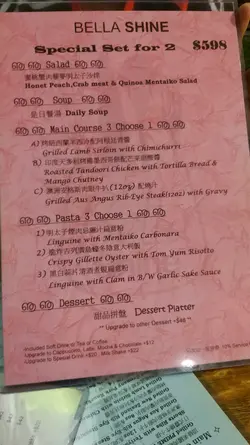 BELLA SHINE
Special Set for 2 $598
Salad
蜜桃蟹肉藜麥明太子沙律
Honet Peach,Crab meat & Quinoa Mentaiko Salad
Soup
是日餐湯 Daily Soup
Main Course 3 Choose 1
A)
Grilled Lamb Sirloin with Chimichurri
B)
Roasted Tandoori Chicken with Tortilla Bread &
Mango Chutney
C)
Grilled Aus Angus Rib-Eye Steak(12oz) with Gravy
Pasta 3 Choose 1
1) 明太子煙肉忌廉汁扁意粉
Linguine with Mentaiko Carbonara
2)
Crispy Gillette Oyster with Tom Yum Risotto
3) 黑白蒜片清酒煮蜆扁意粉
Linguine with Clam in B/W Garlic Sake Sauce
Dessert
甜品拼盤 Dessert Platter
** Upgrade to other Dessert +$48 **
Included Soft Drink or Tea or Coffee
Upgrade to Cappuccino, Latte, Mocha & Chocolate +$12
Upgrade to Special Drink +$20 , Milk Shake +$22